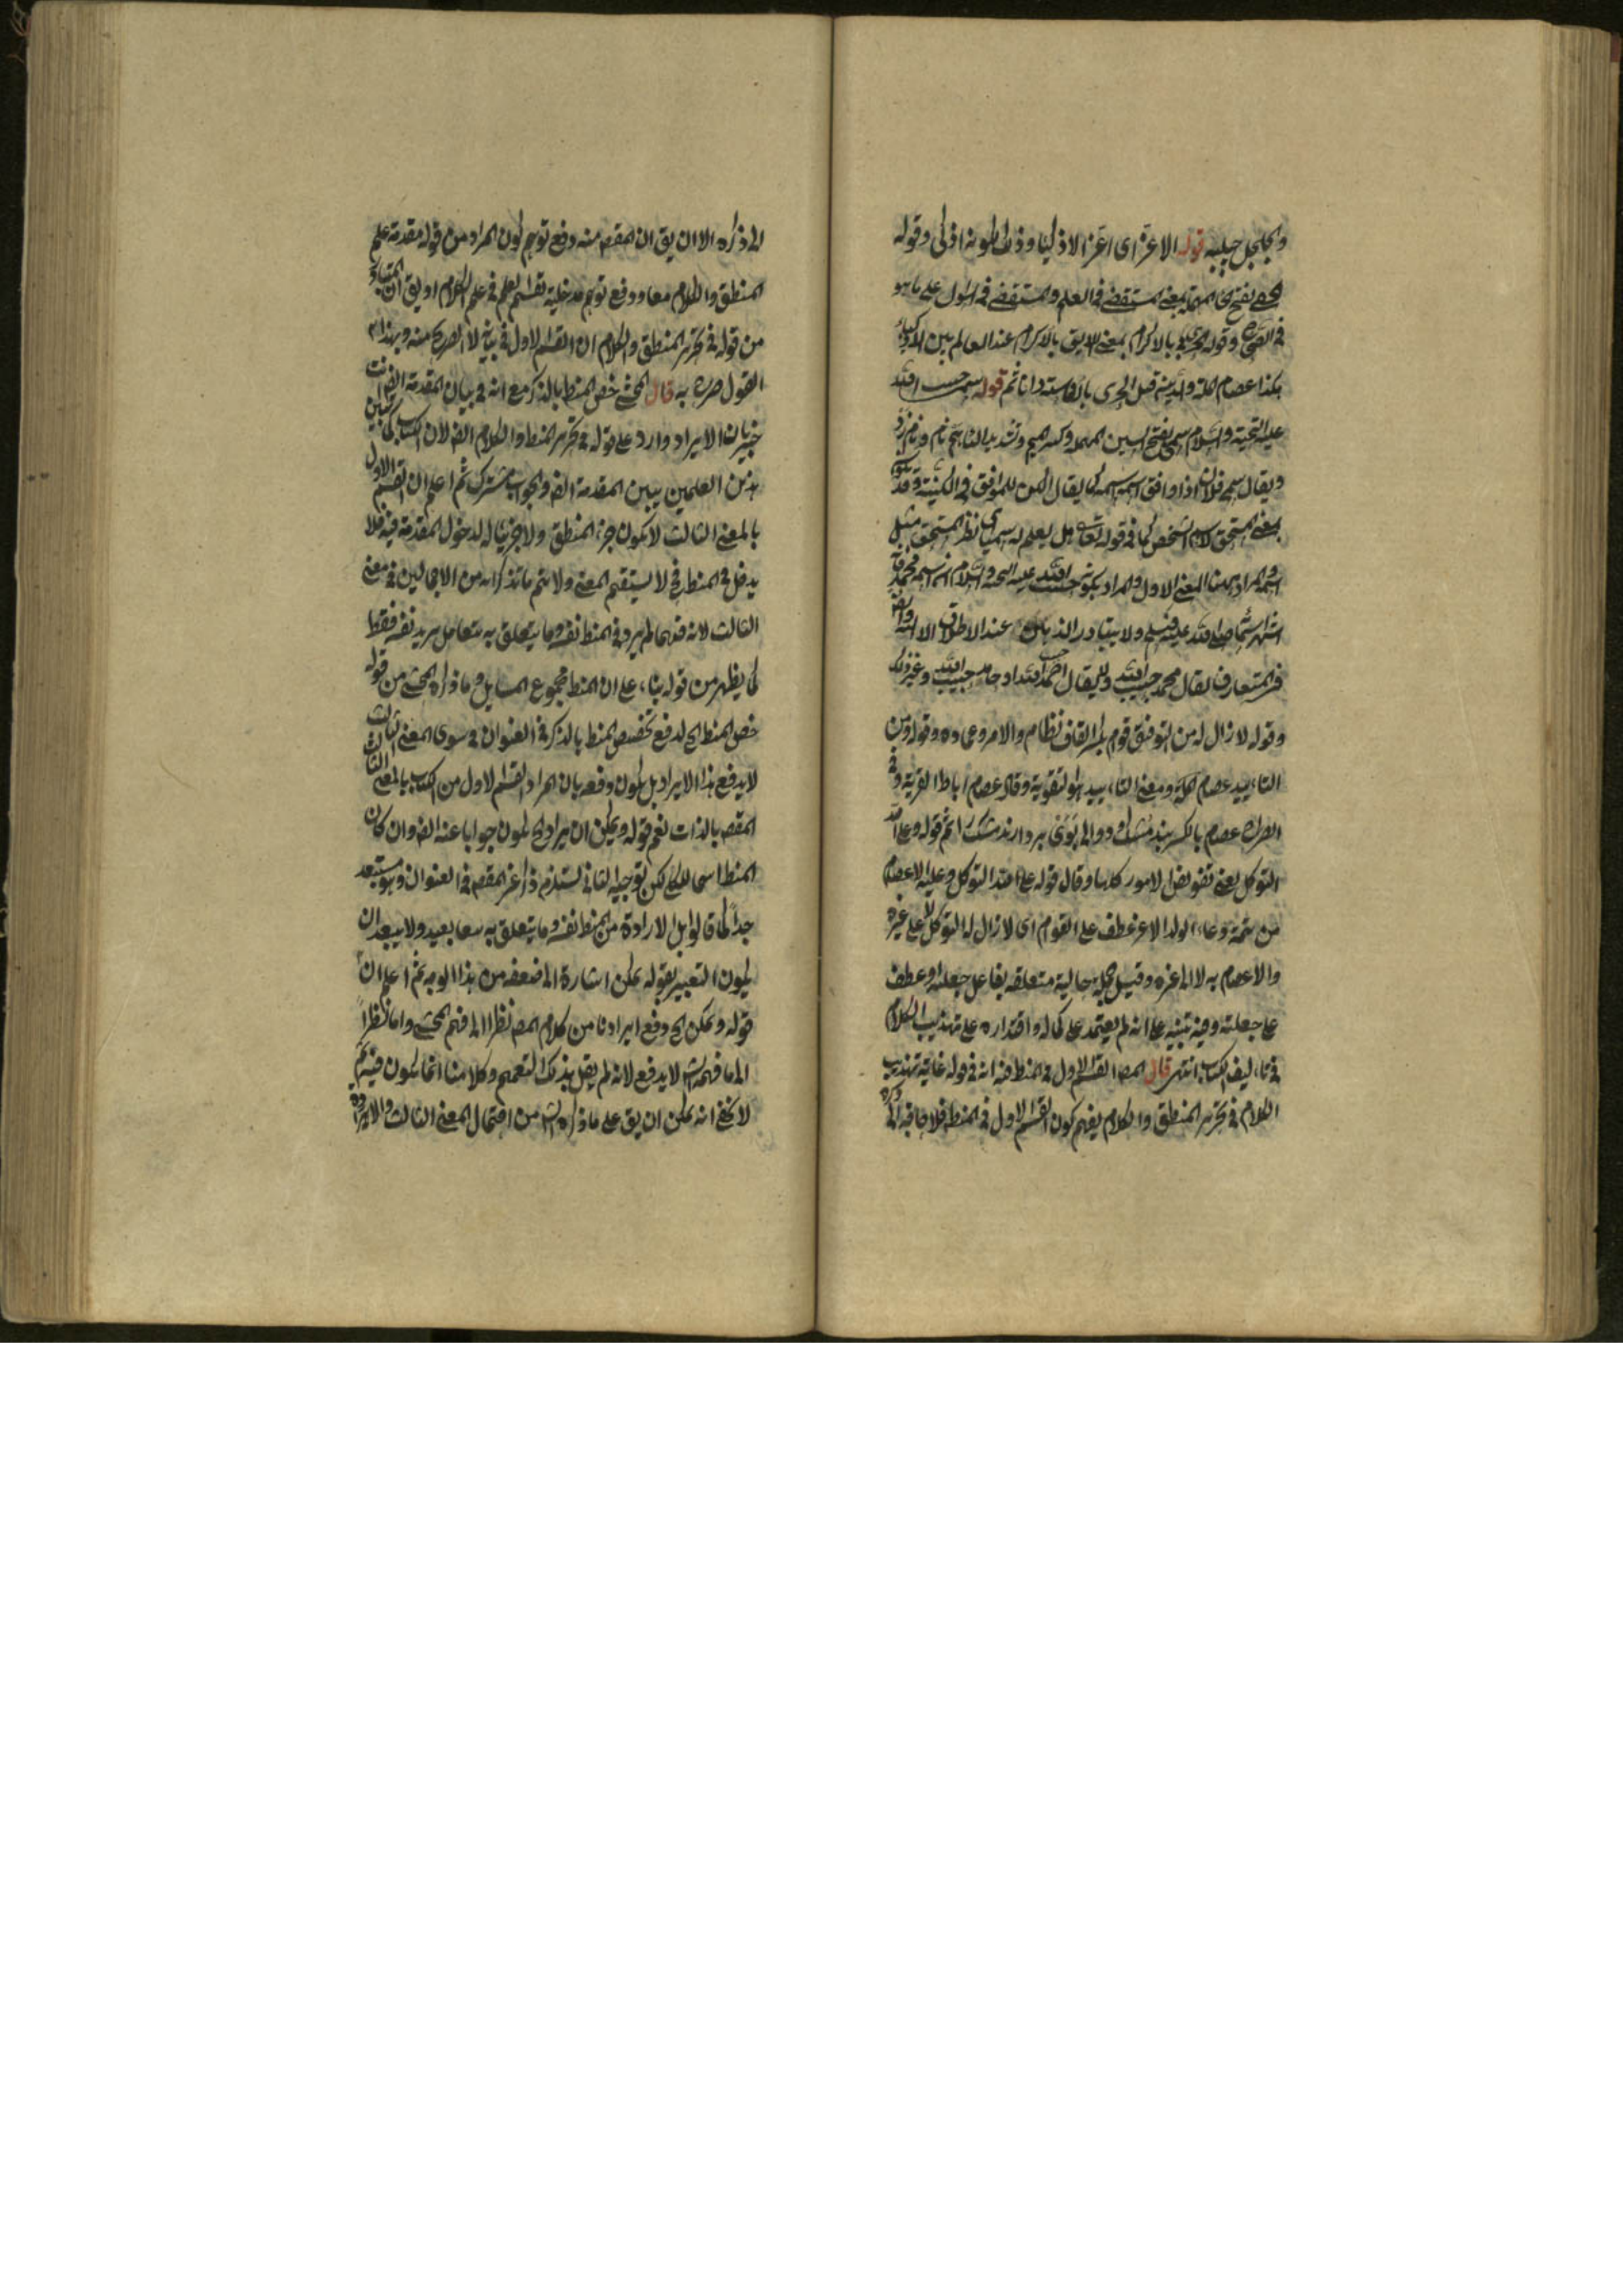 والجلجل جلبيه قوله الاعز اى اعز الاذكيا وذلك لكونه اذكى وقوله
الحفى بفتح الحاء المهملة بمعنى المستقصى فى العلم والمستقصى فى السؤال على ما هو
فى الصحاح وقوله الحرى بالاكرام بمعنى اللايق بالاكرام عند العالمين
هكذا عصام الملة والدين قيل الحرى بالآراسته دانا ثم قوله سمى حبيب الله
عليه التحية والسلام سمى بفتح السين المهملة وكسر الميم وتشديد اليا هم نام
ويقال سمى فلان اذا وافق اسمه اسمه كما يقال الكنى للموافق فى الكنية وقد يكون
بمعنى المستحق لاسم الشخص كما فى قوله تعالى هل يعلم له سميا اى نظير المستحق مثل
اسمه والمراد ههنا المعنى الاول والمراد بكونه حبيب الله عليه التحية والسلام ان اسمه محمد
اشتهر اسمائه صلى الله عليه وسلم ولا يتبادر الذهن عند الاطلاق الا اليه وايضا
فى المتعارف يقال محمد حبيب الله ولا يقال احمد حبيب الله او حامد حبيب الله وغير ذلك
وقوله لا زال له من التوفيق قوام بكسر القاف نظام والامر وعماده وقوله ومن
التاييد عصام الخ ومعنى التاييد هو التقوية وقال عصام رباط القربة وفى
الصراح عصام بالكسر بند مشك ودوالى كه بوى بردارند مشك را ثم قوله وعلى الله
التوكل يعنى تفويض الامور كلها وقال قوله على الله التوكل وعليه الاعتصام
من تتمة دعاء الولد الاعز عطف على القوام اى لا زال له التوكل لا على غيره
والاعصام به لا الى غيره وقيل جملة حالية متعلقة بفاعل جعلته او عطف
على جعلته وفيه تنبيه على انه لم يعتمد على كماله واقتداره على تهذيب الكلام
فى تاليف الكتاب انتهى قال المص القسم الاول فى المنطق فيه انه فى قوله غاية تهذيب
الكلام فى تحرير المنطق والكلام يفهم كون القسم الاول فى المنطق فلا حاجة الى ذكره
الى ذكره الا ان يق ان المقص منه دفع توهم كون المراد من قوله مقدمة علم
المنطق والكلام معا ودفع توهم مدخلية تقسيم العلم فى علم الكلام او يق ان المتبادر
من قوله فى تحرير المنطق والكلام ان القسم الاول فى بيانه لا الصريح منه وبهذا
القول صرح به قال المحشى خص المنط بالذكر مع انه فى بيان المقدمة ايض انت
خبير بان الايراد وارد على قوله فى تحرير المنط والكلام ايض لان الكتاب كما يبين
هذين العلمين يبين المقدمة ايض والجواب مشترك ثم اعلم ان القسم الاول
بالمعنى الثالث لا يكون جزء المنطق ولا جزئيا له لدخول المقدمة فيه فلا
يدخل فى المنط فح لا يستقيم المعنى ولا يتم ما تذكر انه من الاجمالين فى معنى
الثالث لانه قدهما لم يرد فى المنط نفسه وما يتعلق به معا بل يريد نفسه فقط
كما يظهر من قوله بناء على ان المنط مجموع المسايل وما ذكره المحشى من قوله
خص المنط الخ لدفع تخصيص المنط بالذكر فى العنوان فى سوى المعنى الثالث
لا يدفع هذا الايراد بل يكون دفعه بان المراد القسم الاول من الكتاب بالمعنى الثالث
المقص بالذات نعم قوله ويمكن ان يراد الخ يكون جوابا عنه ايض وان كان
المنط اسما للكل لكن توجيه الثانى يستلزم ذكر غير المقص فى العنوان وهو مستبعد
جدا كما قالوا بل الارادة من المنط نفسه وما يتعلق به معا بعيد ولا يبعد ان
يكون التعبير بقوله يمكن اشارة الى ضعفه من هذا الوجه ثم اعلم ان
قوله ويمكن الخ دفع ايرادنا من كلام المص نظرا الى فهم المحشى واما نظرا
الى ما فهمته لا يدفع لانه لم يقل بذلك التعميم وكلامنا انما يكون فيه ثم
لا يخفى انه يمكن ان يق على ما ذكره الش من احتمال المعنى الثالث والايراد